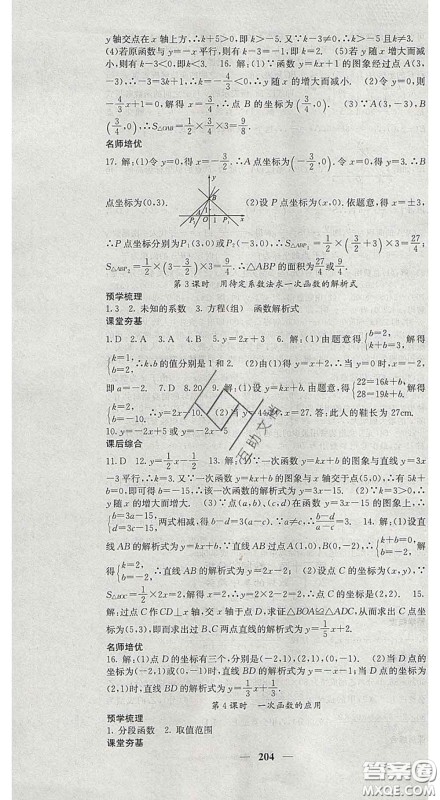 y轴交点在x轴上方,∴k+5>0,即k>-5. (3)若y随x的增大而减小,则k-3<0,即k<3.
(4)若原函数与y=-x平行,则有k-3=-1,即k=2. (5)若y随x增大而减小,则有k-3<0,即k<3. 16. 解:(1)∵一次函数y=kx+1的图象经过点A(3,
-3),∴-3=3k+1,∴k=-4/3<0,∴y随x的增大而减小. (2)令y=0,则
-4/3x+1=0,解得x=3/4,∴点B的坐标为(3/4,0). (3)∵A(3,-3),B
(3/4,0),∴S△OAB=1/2×3/4×3=9/8.
名师培优
17. 解:(1)令y=0,得x=-3/2.∴A点坐标为(-3/2,0).令x=0,得y=3.∴B
点坐标为(0,3).
y
B
A
1
P₂
O
1
P₁
x
(2)设P点坐标为(x,0).依题意,得x=±3,
∴P点坐标分别为P₁(3,0)或P₂(-3,0). ∴S△ABP₁=1/2×(3/2+3)×3=27/4;
S△ABP₂=1/2×(3-3/2)×3=9/4,∴△ABP的面积为27/4或9/4.
第3课时 用待定系数法求一次函数的解析式
预学梳理
1. 3 2. 未知的系数 3. 方程(组) 函数解析式
课堂夯基
1. D 2. A 3. D 4. B 5. y=2x+3 6. 解:(1)由题意得{b=2, k+b=3,解得
{k=1, b=2,∴k,b的值分别是1和2. (2)由(1)得y=x+2,∴当y=0时,x=-2,
即a=-2. 7. D 8. 20 9. 解:(1)设y=kx+b,由题意,得{22=16k+b, 44=28k+b,解得
{k=2, b=-10,∴y=2x-10. (2)当y=44时,x=27.答:此人的鞋长为27cm.
10. y=-2x+5或y=-2x-5
课后综合
11. D
13. 解:(1)∵一次函数y=kx+b的图象与直线y=3x
-3平行,∴k=3.又∵一次函数y=kx+b与x轴交于点(5,0),∴0=5×3+b,
∴b=-15,∴该一次函数的解析式为y=3x-15. (2)∵k=3>0,∴y随x的增
大而增大.
{b=3a-15, d=3c-15,两式相减,得b-d=3(a-c).∵a≠c,∴(b-d)/(a-c)=3. 14. 解:(1)设直
线AB的解析式为y=kx+b.∵直线AB过点A(1,0),B(0,-2),∴{k+b=0, b=-2,解
得{k=2, b=-2,∴直线AB的解析式为y=2x-2. (2)设点C的坐标为(x,y).∵
S△BOC=2,∴1/2×2×x=2,解得x=2,∴y=2×2-2=2,∴点C的坐标是(2,2).
15. 解:过点C作CD⊥x轴,交x轴于点D,求证△BOA≌△ADC,从而求出点C
的坐标为(5,2),即而求出过B,C两点的直线的解析式为y=1/5x+3.
名师培优
16. 解:(1)点D的坐标有三个,分别是(-2,1),(2,-1),(2,1). (2)当D点的
坐标为(-2,1)或(2,-1)时,直线BD的解析式为y=-x-1;当D点的坐标为
(2,1)时,直线BD的解析式为y=1/3x+1/3.
第4课时 一次函数的应用
预学梳理
1. 分段函数 2. 取值范围
课堂夯基
204
互助文档
答案圈
MXQE.COM